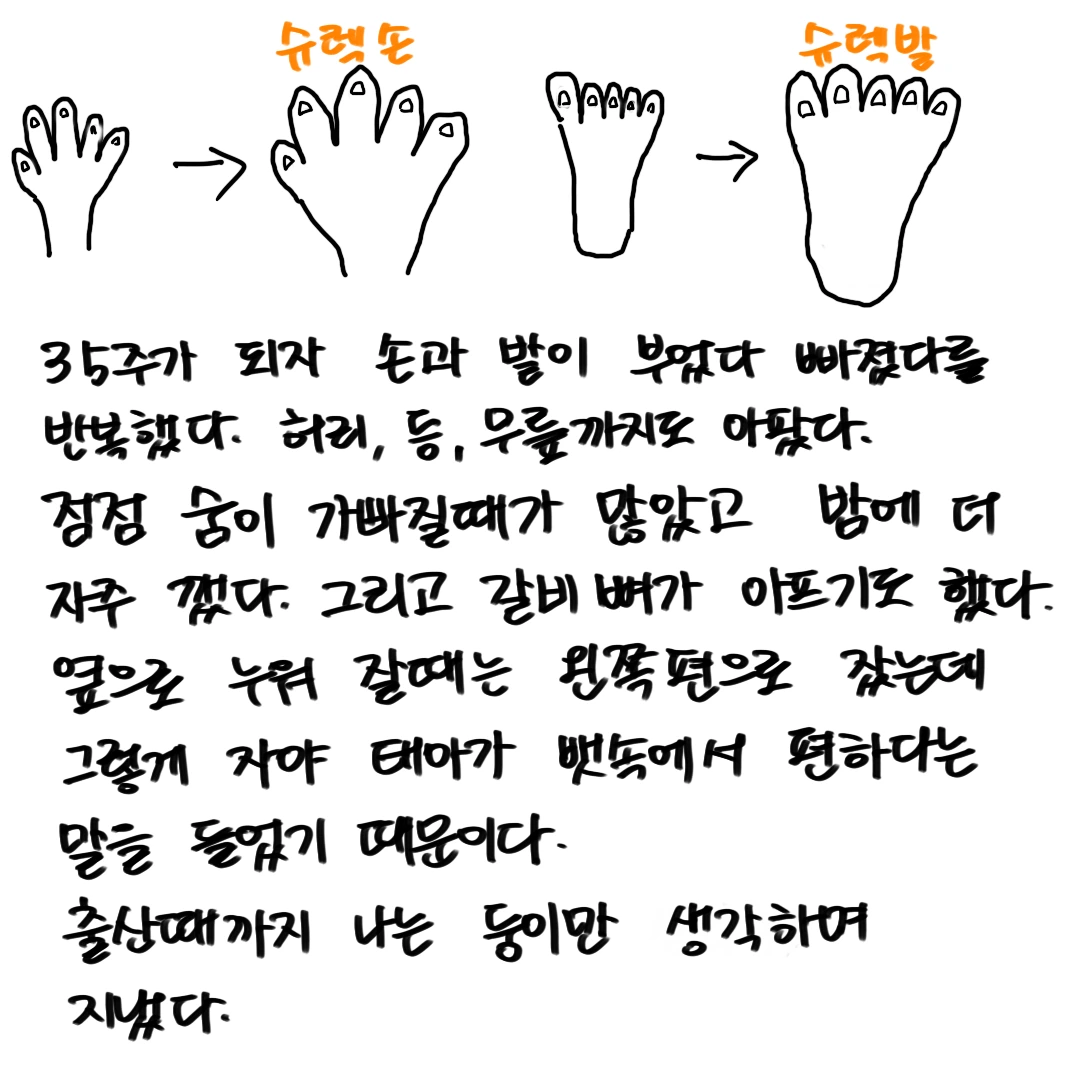 슈렉손
슈렉발
35주가 되자 손과 발이 부었다 빠졌다를
반복했다. 허리, 등, 무릎까지도 아팠다.
점점 숨이 가빠질때가 많았고 밤에 더
자주 깼다. 그리고 갈비뼈가 아프기도 했다.
옆으로 누워 잘때는 왼쪽편으로 잤는데
그렇게 자야 태아가 뱃속에서 편하다는
말을 들었기 때문이다.
출산때까지 나는 둥이만 생각하며
지냈다.